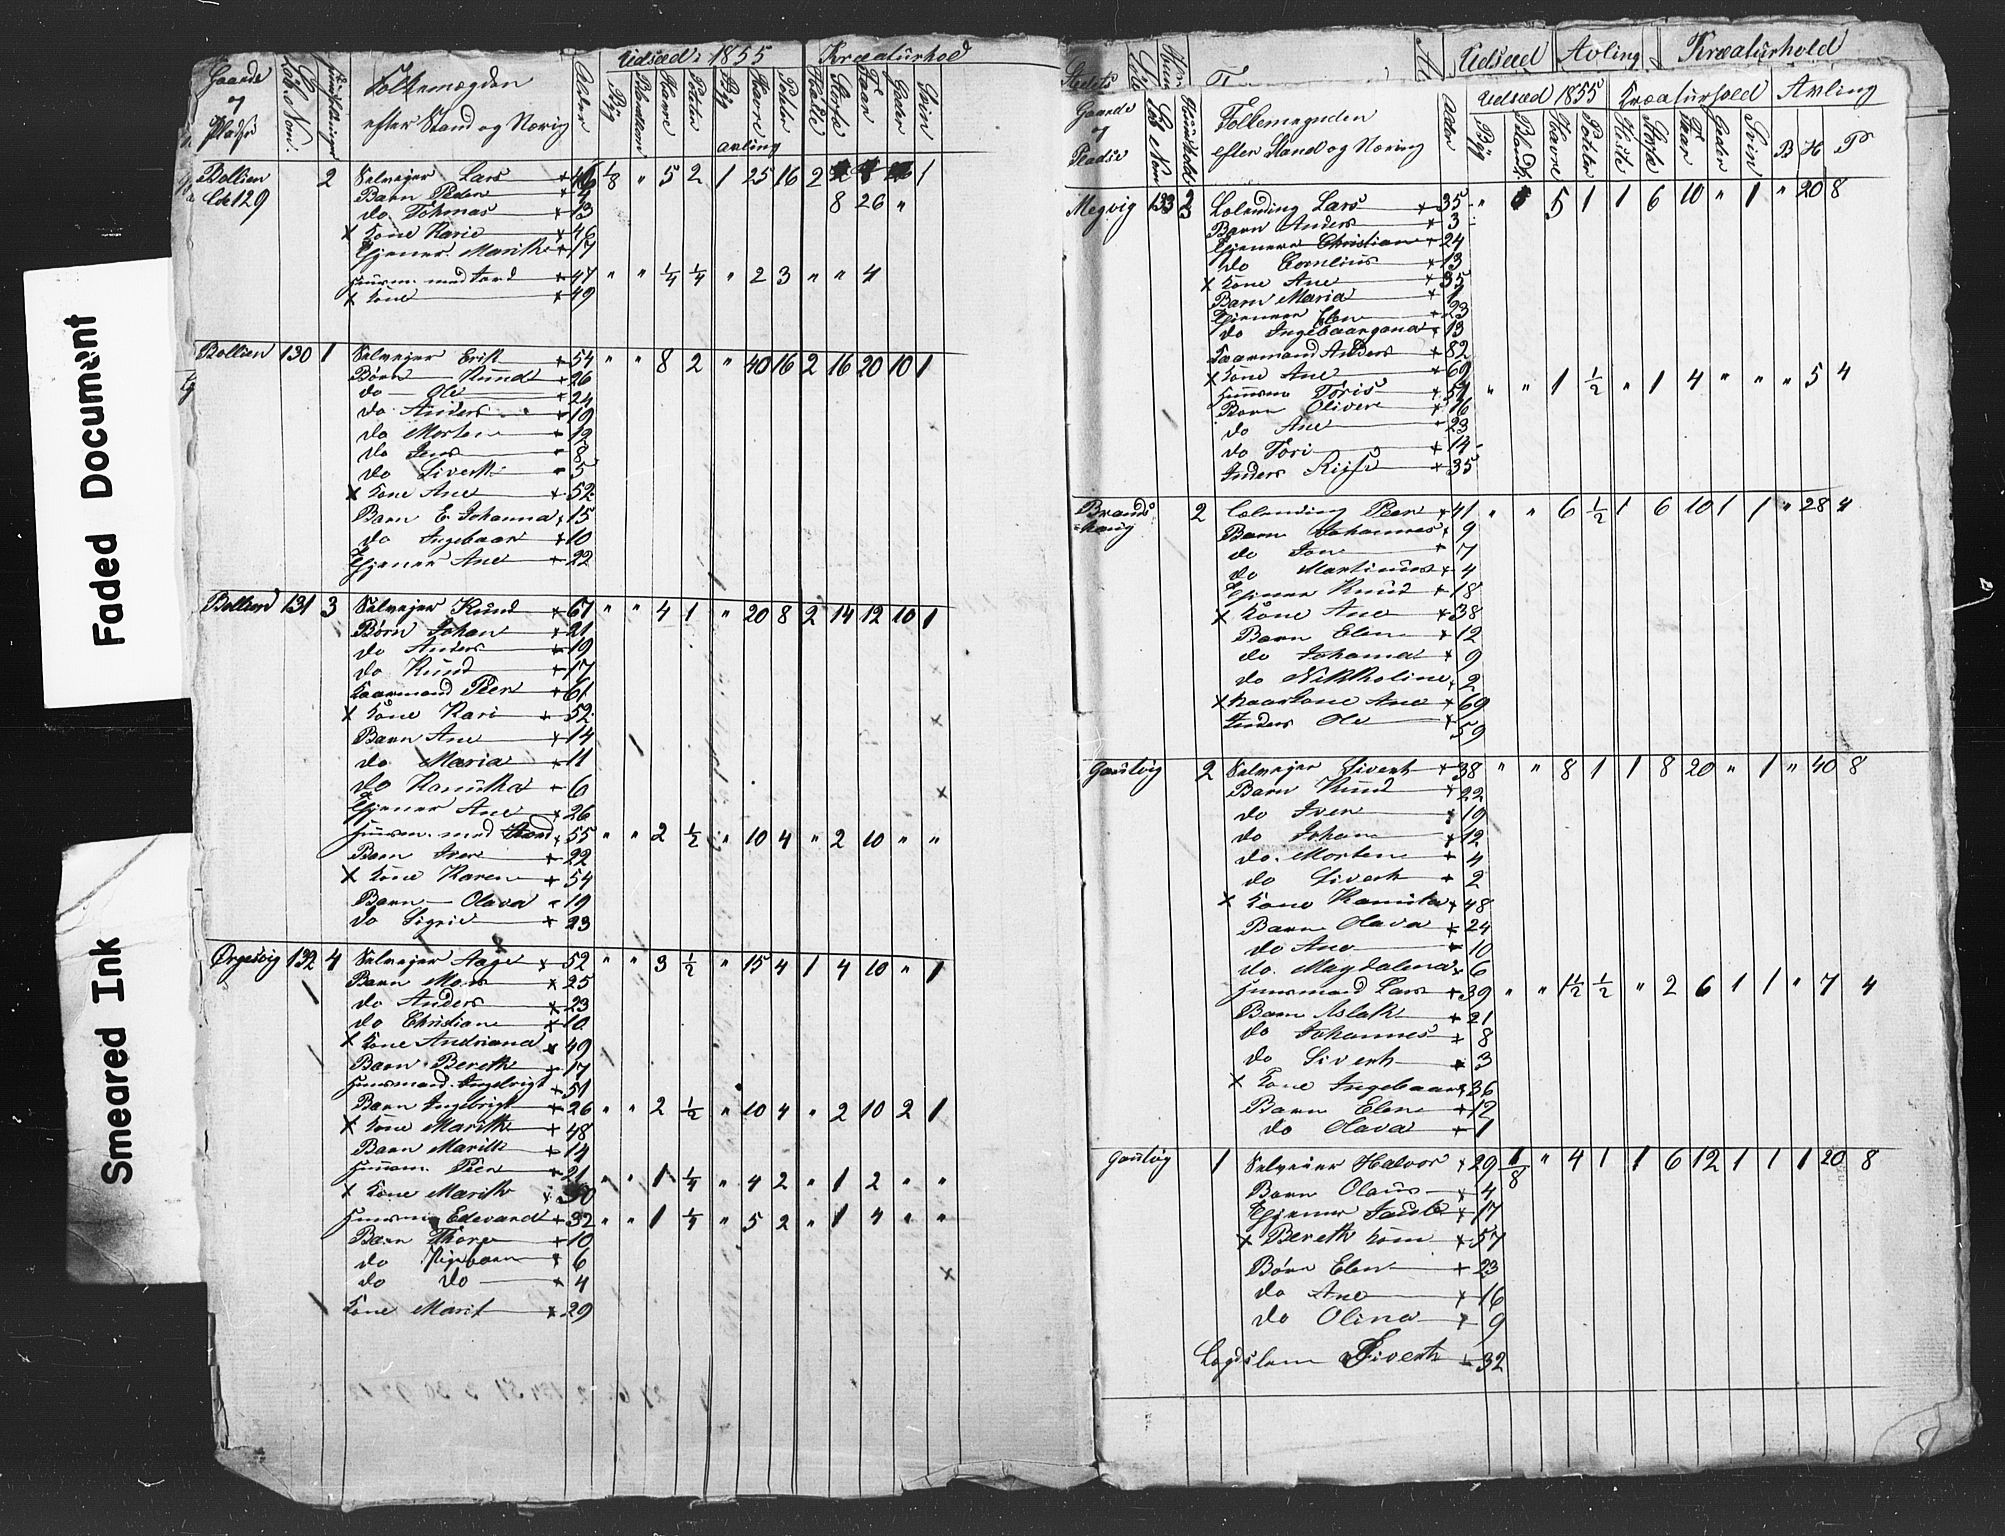 Faded Document
Smeared Ink
Gaarde og Pladse
Løbe Nom
Huusholdninger
Folkemægden efter Stand og Næring
Alder
Udsæd i 1855
Kreaturhold
Byg Blandkorn Havre Poteter Byg Havre Poteter Heste Storfæ Faar Geder Sviin
avling
Bollien 2 Selvejer Lars 46 1/8 " 5 2 1 25 16 2 1
Lb 129 Barn Peder 4
do Tohmas 13 8 26 "
x Kone Karie 46
Tjener Marith 17
Huusm. med Jord 47 " " 1/4 1/4 " 2 3 " " 4
x Kone 49
Bollien 130 1 Selvejer Erik 54 " " 8 2 " 40 16 2 16 20 10 1
Børn Knud 26
do Ole 24
do Anders 19
do Morten 12
do Jens 8
do Siverth 5
x Kone Ane 52
Barn E. Johanna 15
do Ingebaar 10
Tjener Ane 22
Bollien 131 3 Selvejer Knud 67 " " 4 1 " 20 8 2 14 12 10 1
Børn Johan 21
do Anders 19
do Knud 17
Kaarmand Peer 61
x Kone Kari 52
Barn Ane 14
do Maria 11
do Kanutha 6
Tjener Ane 26
Huusm. med Jord 55 " " 2 1/2 " 10 4 " 2 10 " "
Barn Iver 22
x Kone Karen 54
Barn Olava 19
do Sigrie 23
Ørgesvig 132 4 Selvejer Aage 52 " " 3 1/2 " 15 4 1 4 10 " 1
Barn Mons 25
do Anders 23
do Christian 10
x Kone Andriana 49
Barn Bereth 17
Huusmand Ingebrigt 51
Barn Ingebrigt 26 " " 2 1/2 " 10 4 " 2 10 2 1
x Kone Marith 48
Barn Marith 14
Huusm. Peer 21 " " 1 1/4 " 4 2 " 1 2 " "
x Kone Marith 30
Huusm Edevard 32 " " 1 1/4 " 5 2 " 1 4 " "
Barn Thore 10
do 6
do do 4
Kone Marit 29
Udsæd Avling Kreaturhold
Stedets Gaarde og Pladse
Løb Nom
Huushold
Folkemengden efter Stand og Næring
Alder
Udsæd 1855 Kreaturhold Avling
Byg Bland. Havre Poteter Heste Storfæ Faar Geder Sviin B H P
Megvig 133 3 Lølending Lars 35 " 5 1 1 6 10 " 1 " 20 8
Barn Anders 3
Tjenere Christian 24
do Cornelius 13
x Kone Ane 35
Barn Maria 1
Tjenere Elen 23
do Ingebaargana 13
Kaarmand Anders 82
x Kone Ane 69
Huusm Toris 51 " " 1 1/2 " 1 4 " " " 5 4
Barn Oliver 16
do Ane 23
do Tori 14
Inders 35
Brands=haug 2 Lølending Peer 41 " " 6 1/2 1 6 10 1 1 " 28 4
Barn Johannes 9
do Jon 7
do Martinus 4
Tjener Knud 18
x Kone Ane 38
Barn Elen 12
do Johanna 9
do Nikkoline 2
x Kaarkone Ane 69
Inders Ole 59
Gautvig 2 Selvejer Siverth 38 " " 8 1 1 8 20 " 1 " 40 8
Barn Knud 22
do Iver 19
do Johan 12
do Morten 4
do Siverth 2
x Kone Kanutha 48
Barn Olava 24
do Ane 10
do Magdalena 6
Huusmand Lars 39 " " 1 1/2 1/2 " 2 6 1 1 " 7 4
Barn Aslak 21
do Johannes 8
do Siverth 3
x Kone Ingebaar 36
Barn Elen 12
do Olava 1
Gautvig 1 Selveier Halvor 29 1/8 " 4 1 1 6 12 1 1 1 20 8
Barn Olaus 4
Tjener Jacob 17
x Bereth Kone 57
Børn Elen 23
do Ane 16
do Olina 9
Siverth 32